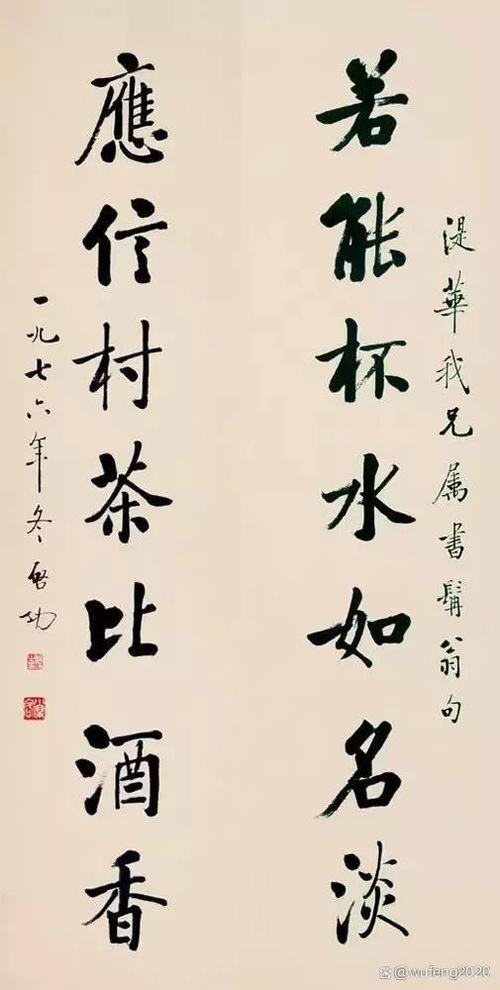 湜華我兄属書髯翁句
若能杯水如名淡
應信村茶比酒香
一九七六年冬啓功
@wufeng2020